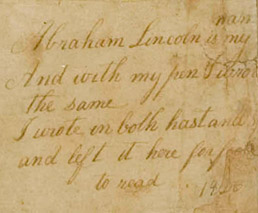 nam
Abraham Lincoln is my
And with my pen I wrot
the same
I wrote in both hast and
and left it here for
to read